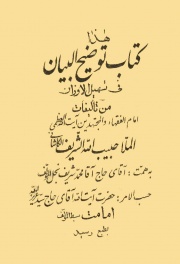 هذا
كتاب توضيح البيان
فى تسهيل الاوزان
من تاليفات
امام الفقهاء والمجتهدين آيت الله العظمى
الملا حبيب الله الشريف الكاشانى
به همت: آقاى حاج آقا محمد شريف
حسب الامر: حضرت آيت الله آقاى حاج سيد
امامت
بطبع رسيد